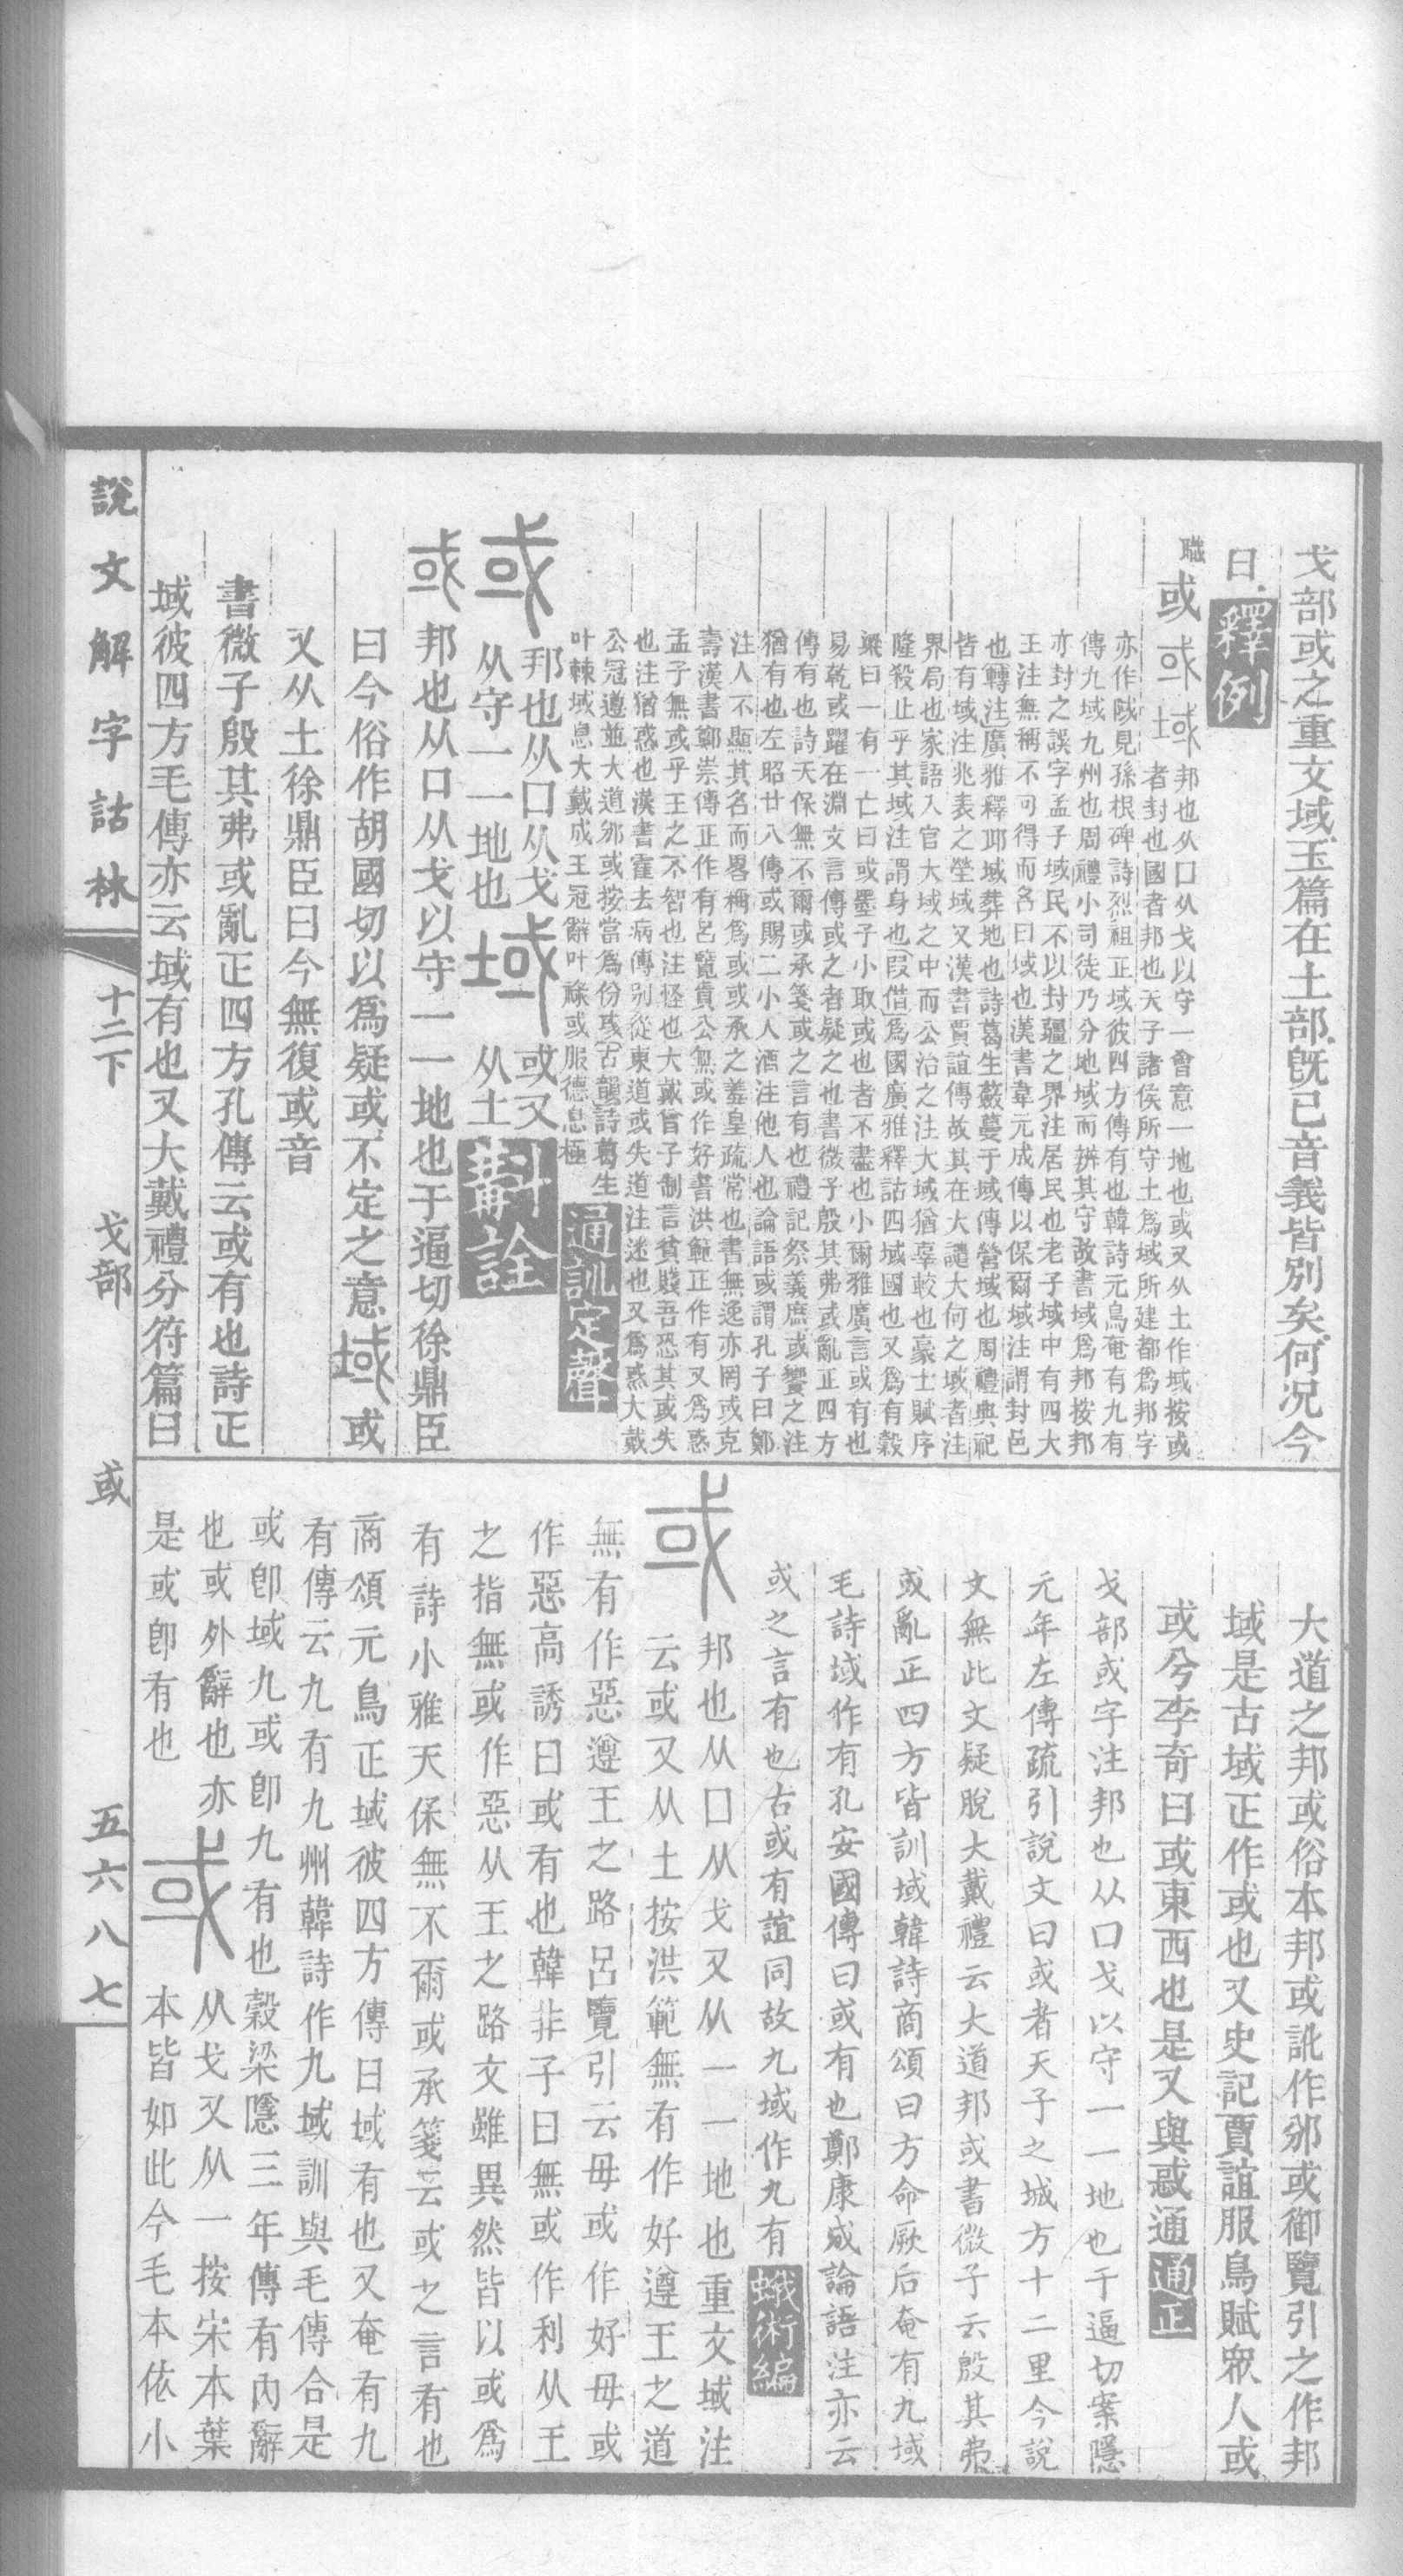 戈部或之重文域玉篇在土部旣已音義皆別矣何況今
曰釋例
職
或 或 域 邦也从囗从戈以守一會意一地也或又从土作域按或
者封也國者邦也天子諸侯所守土爲域所建都爲邦字
亦作㽣見孫根碑詩烈祖正域彼四方傳有也韓詩元鳥奄有九有
傳九域九州也周禮小司徒乃分地域而辨其守故書域爲邦按邦
亦封之誤字孟子域民不以封疆之界注居民也老子域中有四大
王注無稱不可得而名曰域也漢書韋元成傳以保爾域注謂封邑
也轉注廣雅釋邱域葬地也詩葛生蘞蔓于域傳營域也周禮典祀
皆有域注兆表之塋域又漢書賈誼傳故其在大譴大何之域者注
界局也家語入官大域之中而公治之注大域猶辜較也豪士賦序
隆殺止乎其域注謂身也叚借爲國廣雅釋詁四域國也又爲有穀
梁曰一有一亡曰或墨子小取或也者不盡也小爾雅廣言或有也
易乾或躍在淵文言傳或之者疑之也書微子殷其弗或亂正四方
傳有也詩天保無不爾或承箋或之言有也禮記祭義庶或饗之注
猶有也左昭廿八傳或賜二小人酒注他人也論語或謂孔子曰鄭
注人不顯其名而畧稱爲或或承之羞皇疏常也書無逸亦罔或克
壽漢書鄭崇傳正作有呂覽貴公無或作好書洪範正作有又爲惑
孟子無或乎王之不智也注怪也大戴曾子制言貧賤吾恐其或失
也注猶惑也漢書霍去病傳别從東道或失道注迷也又爲惑大戴
公冠遵並大道邠或按當爲份彧古韻詩葛生
叶棘域息大戴成王冠辭叶祿或服德息極 通訓定聲
或 邦也从囗从戈
从守一一地也 域 或又
从土 斠詮
或 邦也从囗从戈以守一一地也于逼切徐鼎臣
曰今俗作胡國切以爲疑或不定之意 域 或
又从土徐鼎臣曰今無復或音
書微子殷其弗或亂正四方孔傳云或有也詩正
域彼四方毛傳亦云域有也又大戴禮分符篇曰
大道之邦或俗本邦或訛作邠或御覽引之作邦
域是古域正作或也又史記賈誼服鳥賦衆人或
或兮李奇曰或東西也是又與惑通 通正
戈部或字注邦也从囗戈以守一一地也于逼切案隱
元年左傳疏引說文曰或者天子之城方十二里今說
文無此文疑脫大戴禮云大道邦或書微子云殷其弗
或亂正四方皆訓域韓詩商頌曰方命厥后奄有九域
毛詩域作有孔安國傳曰或有也鄭康成論語注亦云
或之言有也古或有誼同故九域作九有 蛾術編
或 邦也从囗从戈又从一一地也重文域注
云或又从土按洪範無有作好遵王之道
無有作惡遵王之路呂覽引云毋或作好毋或
作惡高誘曰或有也韓非子曰無或作利从王
之指無或作惡从王之路文雖異然皆以或爲
有詩小雅天保無不爾或承箋云或之言有也
商頌元鳥正域彼四方傳曰域有也又奄有九
有傳云九有九州韓詩作九域訓與毛傳合是
或卽域九或卽九有也穀梁隱三年傳有內辭
也或外辭也亦 或 从戈又从一按宋本葉
是或卽有也 本皆如此今毛本依小
說文解字詁林 十二下 戈部 或 五六八七